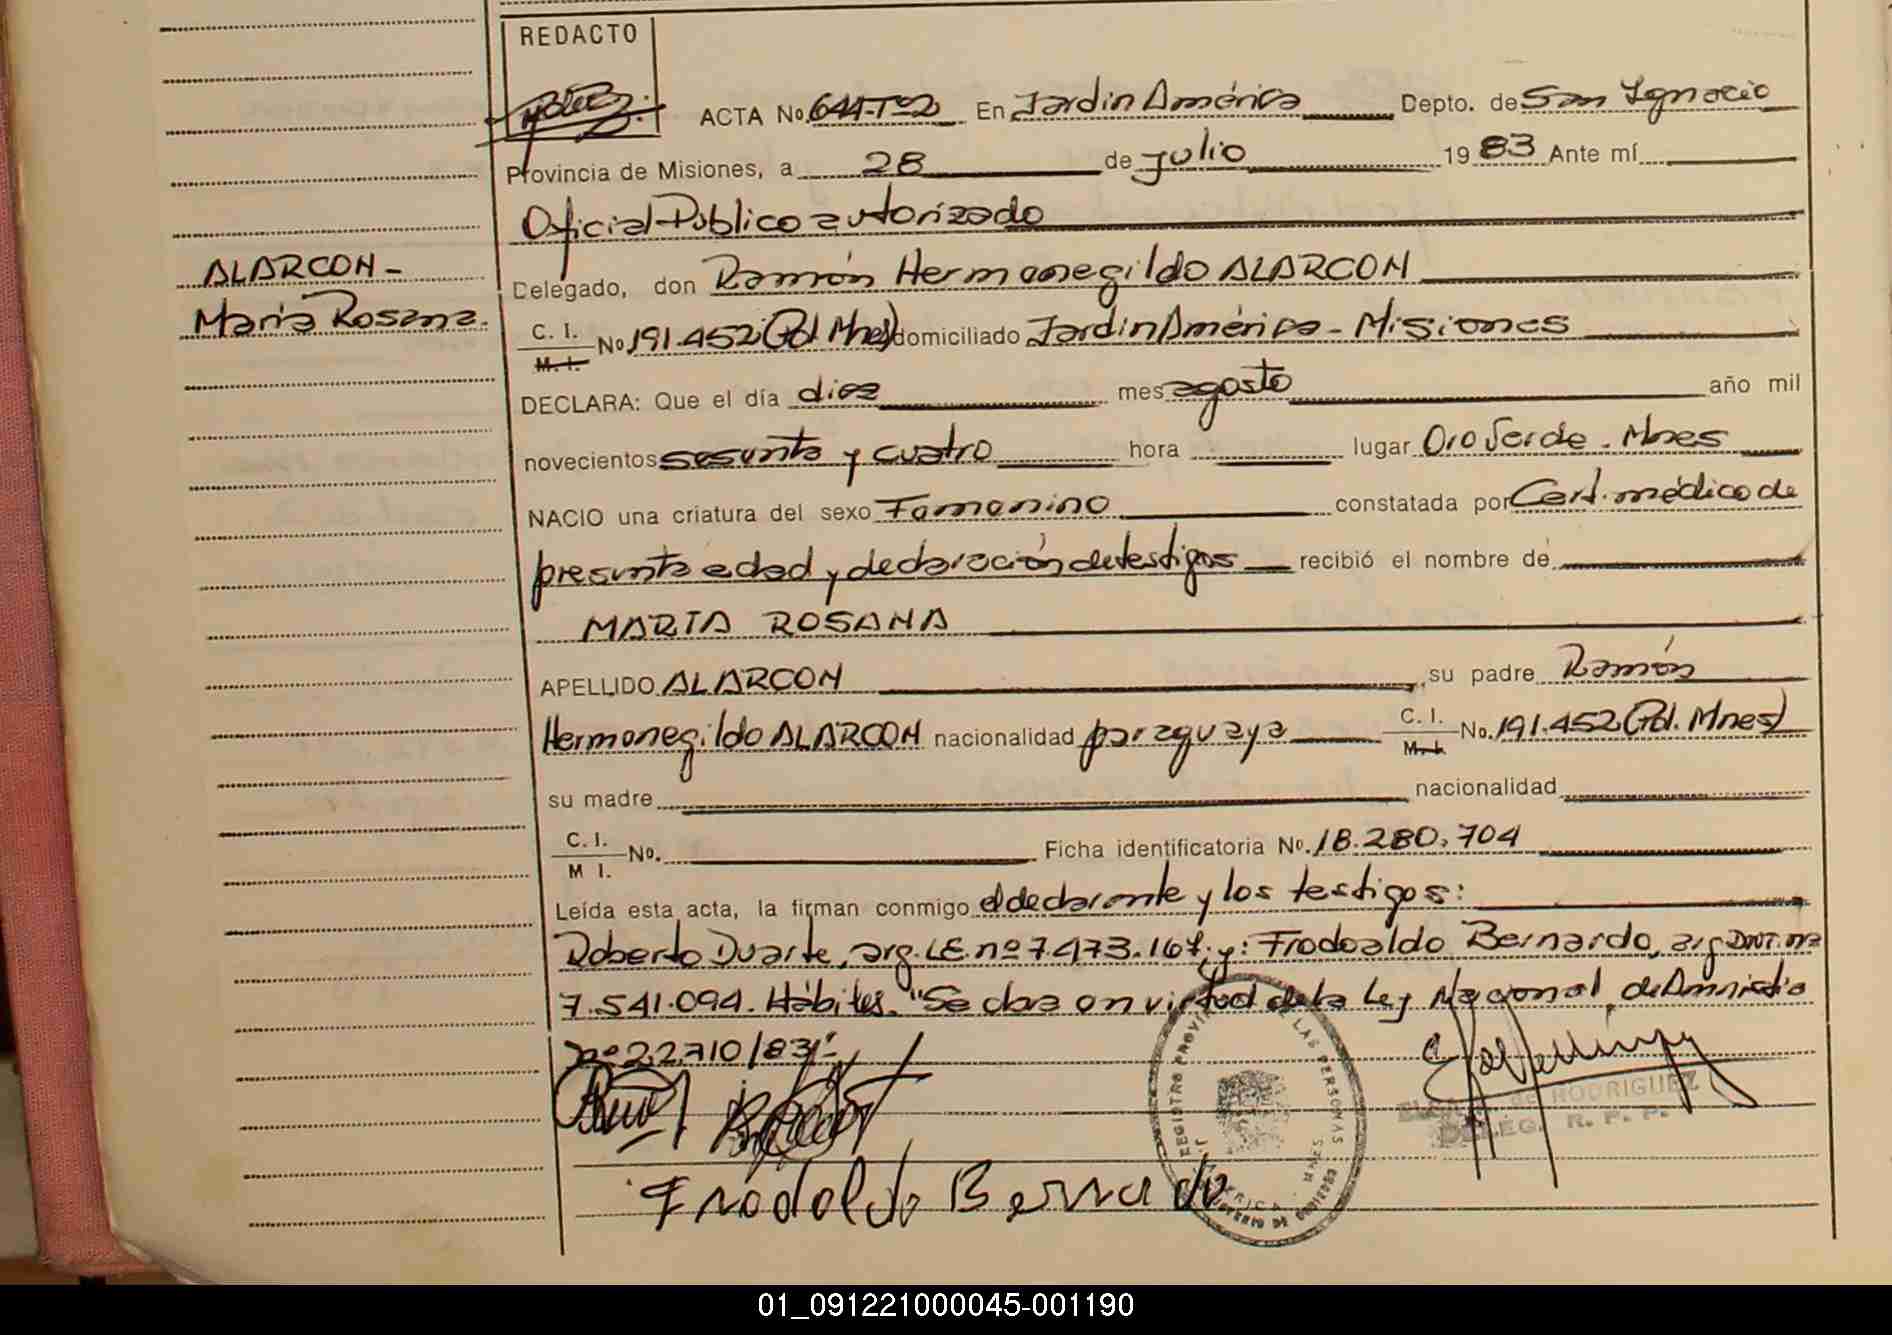 REDACTO
ACTA No. 644-Tº2 En Jardin América Depto. de San Ignacio
Provincia de Misiones, a 28 de Julio 1983 Ante mí
Oficial Público autorizado
ALARCON-
María Rosana.
Delegado, don Ramón Hermenegildo ALARCON
C. I. M. I. No 191.452 (Pol. Mnes) domiciliado Jardin América - Misiones
DECLARA: Que el día diez mes agosto año mil
novecientos sesenta y cuatro hora lugar Oro Verde - Mnes
NACIO una criatura del sexo Femenino constatada por Cert. médico de
presunta edad y declaración de testigos recibió el nombre de
MARIA ROSANA
APELLIDO ALARCON, su padre Ramón
Hermenegildo ALARCON nacionalidad paraguaya C. I. M. I. No. 191.452 (Pol. Mnes)
su madre nacionalidad
C. I. M I. No. Ficha identificatoria No. 18.280.704
Leída esta acta, la firman conmigo el declarante y los testigos:
Roberto Duarte, arg. LE. nº 7.473.167, y: Frodoaldo Bernardo, arg DNI. nº
7.541.094. Hábiles. "Se labra en virtud de la Ley Nacional de Amnistia
nº 22.710/83".-
REGISTRO PROVINCIAL DE LAS PERSONAS
MINISTERIO DE GOBIERNO
de RODRIGUEZ
DELEG. R. P. P.
Frodoldo Bernardo
01_091221000045-001190